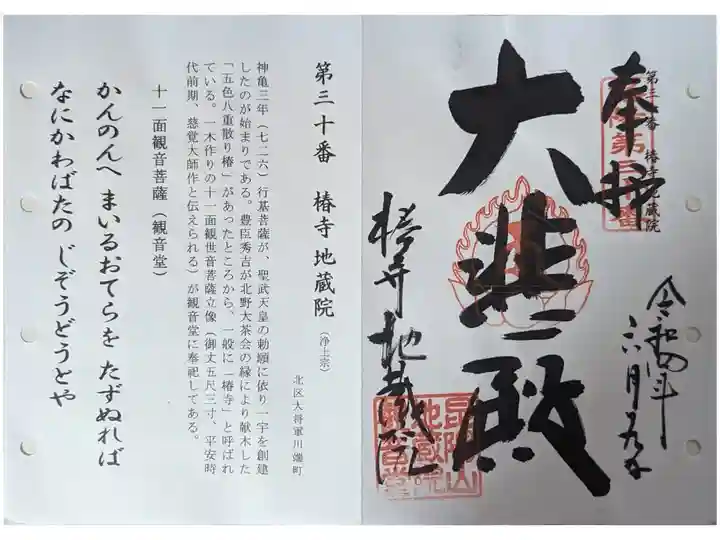 第三十番 椿寺地蔵院
奉拝
大悲殿
椿寺 地蔵院
令和四年
六月
第三十番 椿寺 地蔵院 (浄土宗)
北区大将軍川端町
神亀三年(七二六)行基菩薩が、聖武天皇の勅願に依り一宇を創建
したのが始まりである。豊臣秀吉が北野大茶会の縁により献木した
「五色八重散り椿」があったところから、一般に「椿寺」と呼ばれ
ている。一木作りの十一面観世音菩薩立像(御丈五尺三寸、平安時
代前期、慈覚大師作と伝えられる)が観音堂に奉祀してある。
十一面観音菩薩(観音堂)
かんのんへ まいるおてらを たずぬれば
なにかわばたの じぞうどうとや